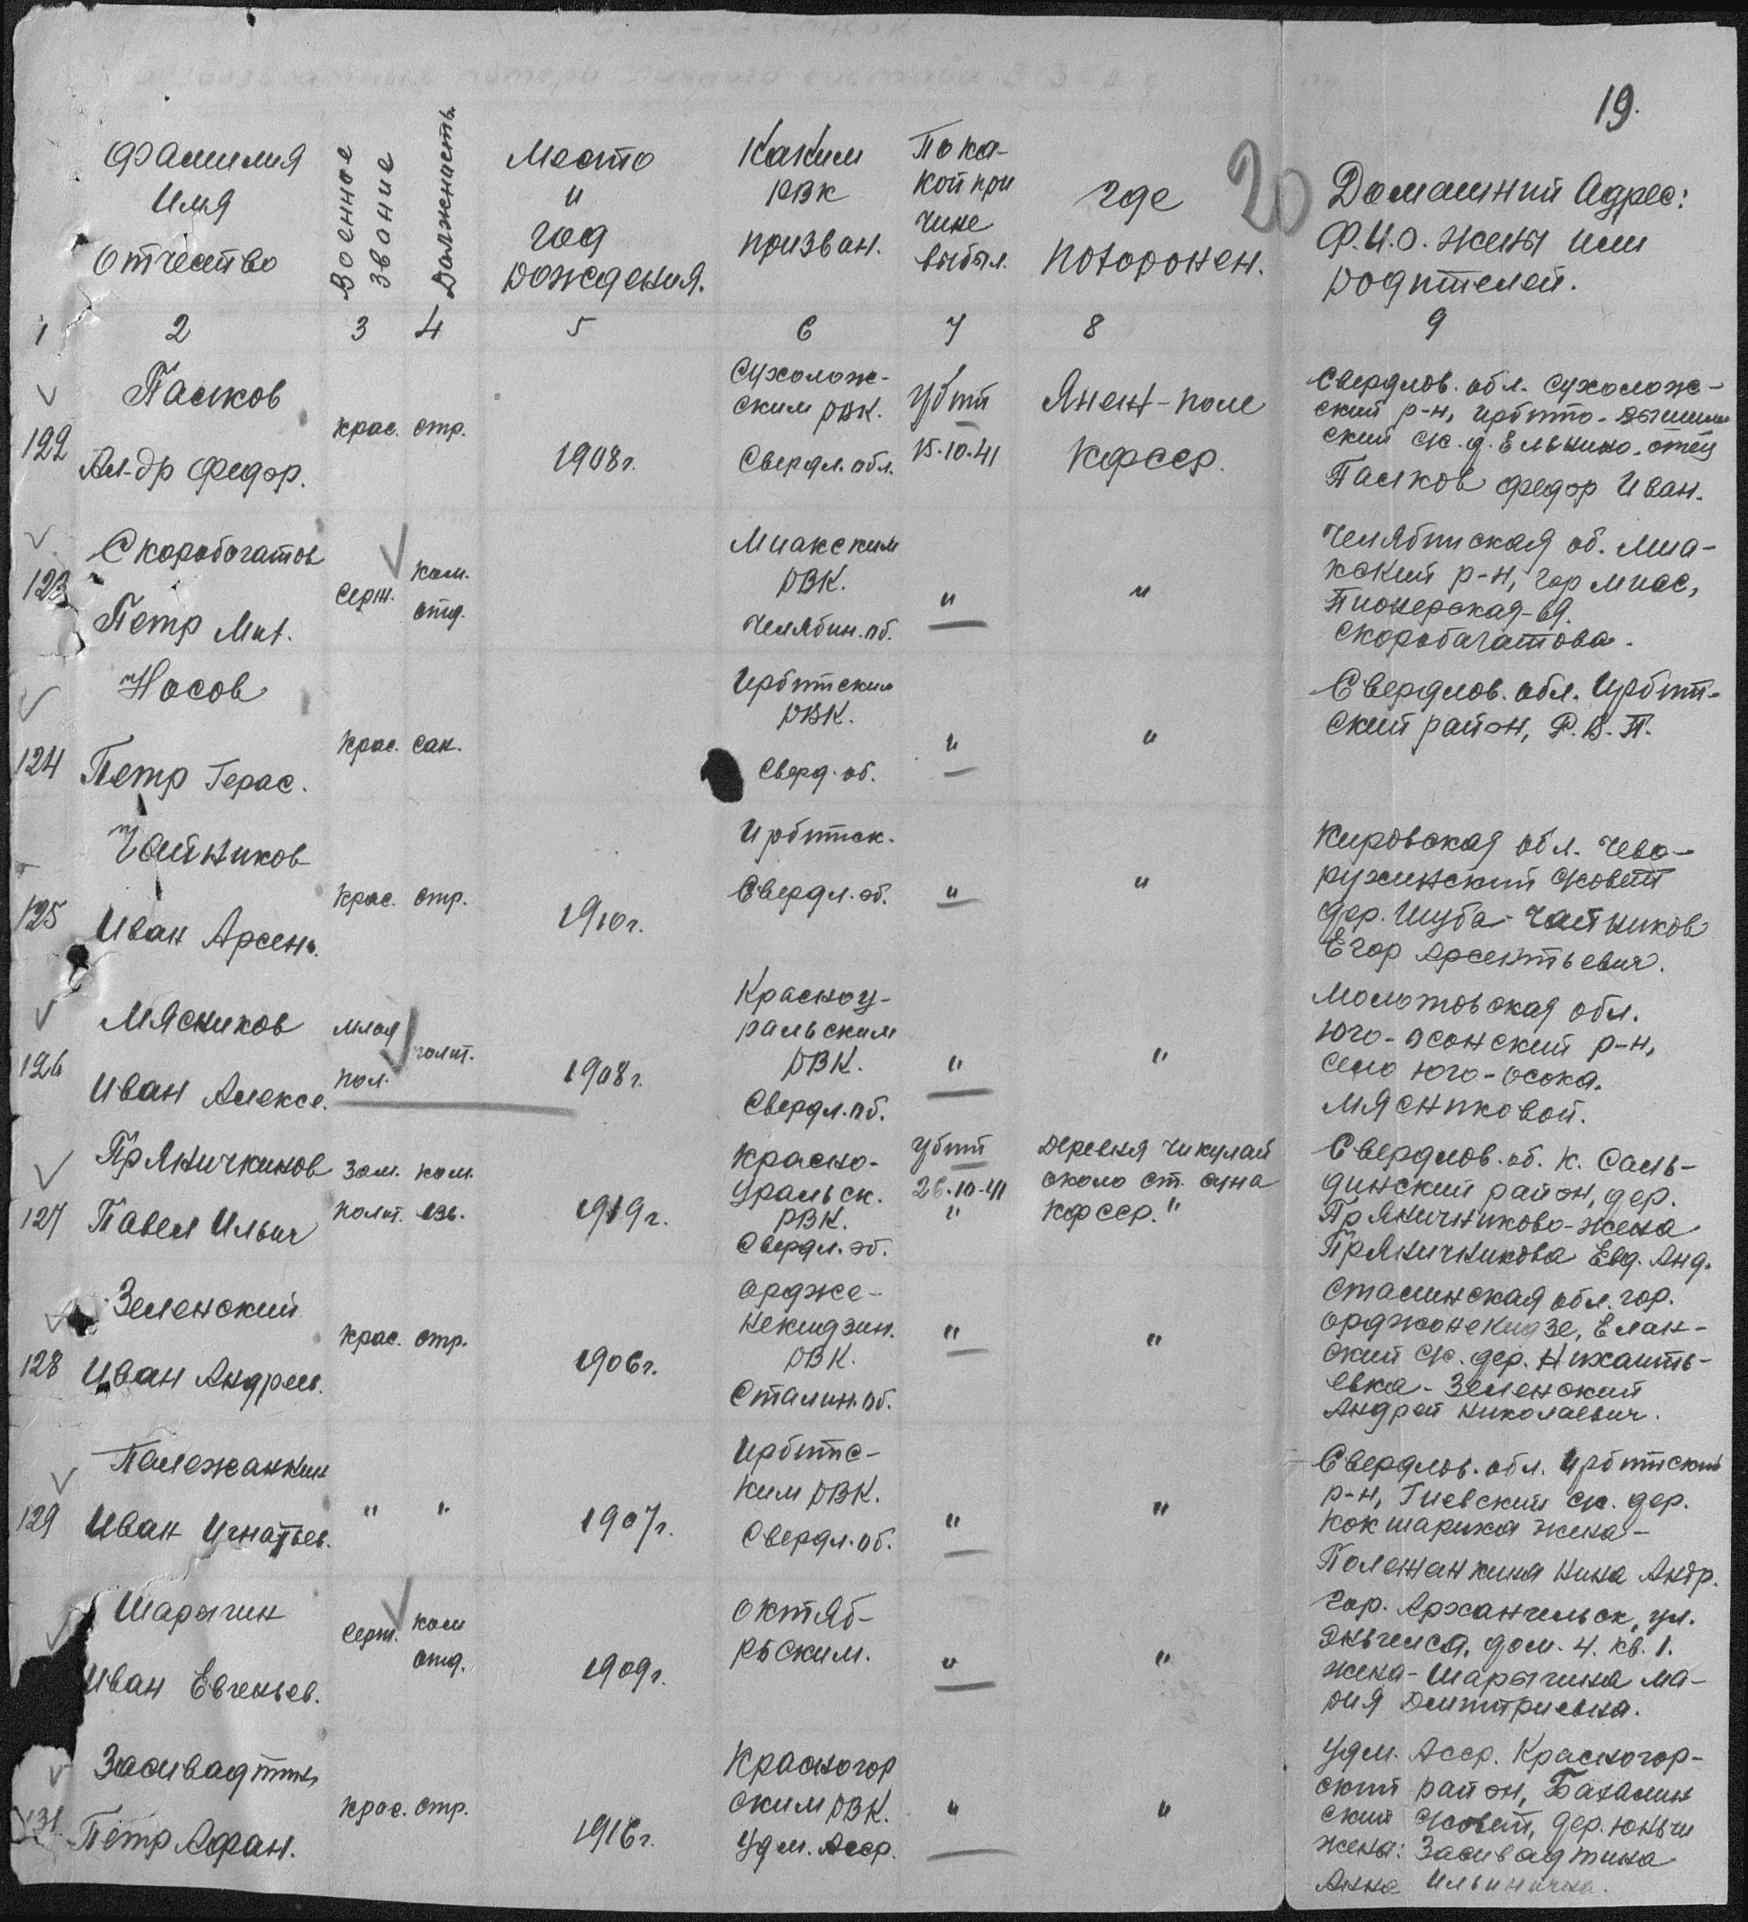 19.
20
Фамилия Имя Отчество
Военное звание
Должность
Место и год рождения.
Каким РВК призван.
По какой причине выбыл.
где похоронен.
Домашний Адрес: Ф.И.О. жены или родителей.
1 2 3 4 5 6 7 8 9
122
Пашков
Ал-др Федор.
крас. стр.
1908г.
Сухолож-
ским РВК.
Свердл. обл.
Убит
15.10.41
Янен-поле
КФССР.
Свердлов. обл. Сухолож-
ский р-н, Ирбито-
ский с/с. д. Елькино. отец
Пашков Федор Иван.
123
Скоробогатов
Петр Мих.
Серж.
ком.
отд.
Миакским
РВК.
Челябин. об.
"
"
Челябинская об. Миа-
кский р-н, гор Миас,
Пионерская-69.
Скоробагатова.
124
Носов
Петр Герас.
Крас. сан.
Ирбитским
РВК.
Сверд. об.
"
"
Свердлов. обл. Ирбит-
ский район, Р.В.П.
125
Чайников
Иван Арсен.
Крас. стр.
1910г.
Ирбитск.
Свердл. об.
"
"
Кировская обл. Чево-
ружинский совет
дер. Шуба Чайников
Егор Арсентьевич.
126
Мясников
Иван Алексе.
млад
пол.
полит.
1908г.
Красноу-
ральским
РВК.
Свердл. об.
"
"
Молотовская обл.
Юго-Осокский р-н,
село Юго-Осока.
Мясниковой.
127
Пряничкинов
Павел Ильич
Зам. ком.
полит. взв.
1919г.
Красно-
уральск.
РВК.
Свердл. об.
Убит
26.10.41
"
Деревня Чикулай
около ст. Суна
КФССР. "
Свердлов. об. К. Саль-
динский район, дер.
Пряничниково-жена
Пряничникова Евд. Анд.
128
Зеленский
Иван Андрее.
Крас. стр.
1906г.
Ордже-
некидзин.
РВК.
Сталин. об.
"
"
Сталинская обл. гор.
Орджонекидзе, Елан-
ский с/с. дер.
евка-Зеленский
Андрей Николаевич.
129
Полежанкин
Иван Игнатьев.
" "
1907г.
Ирбитс-
ким РВК.
Свердл. об.
"
"
Свердлов. обл. Ирбитский
р-н, Гиевский с/с. дер.
Кокшариха жена-
Полежанкина Нина Андр.
Шарыгин
Иван Евгеньев.
Серж.
ком
отд.
1909г.
Октяб-
рьским.
"
"
Гор. Архангельск, ул.
Энгельса, дом. 4. кв. 1.
жена-Шарыгина Ма-
рия Дмитриевна.
131
Засивадтин
Петр Афан.
Крас. стр.
1916г.
Красногор
ским РВК.
Удм. Асср.
"
"
Удм. Асср. Красногор-
ский район, Бахалин
ский совет, дер. Юньги
жена: Засивадтина
Анна Ильинична.